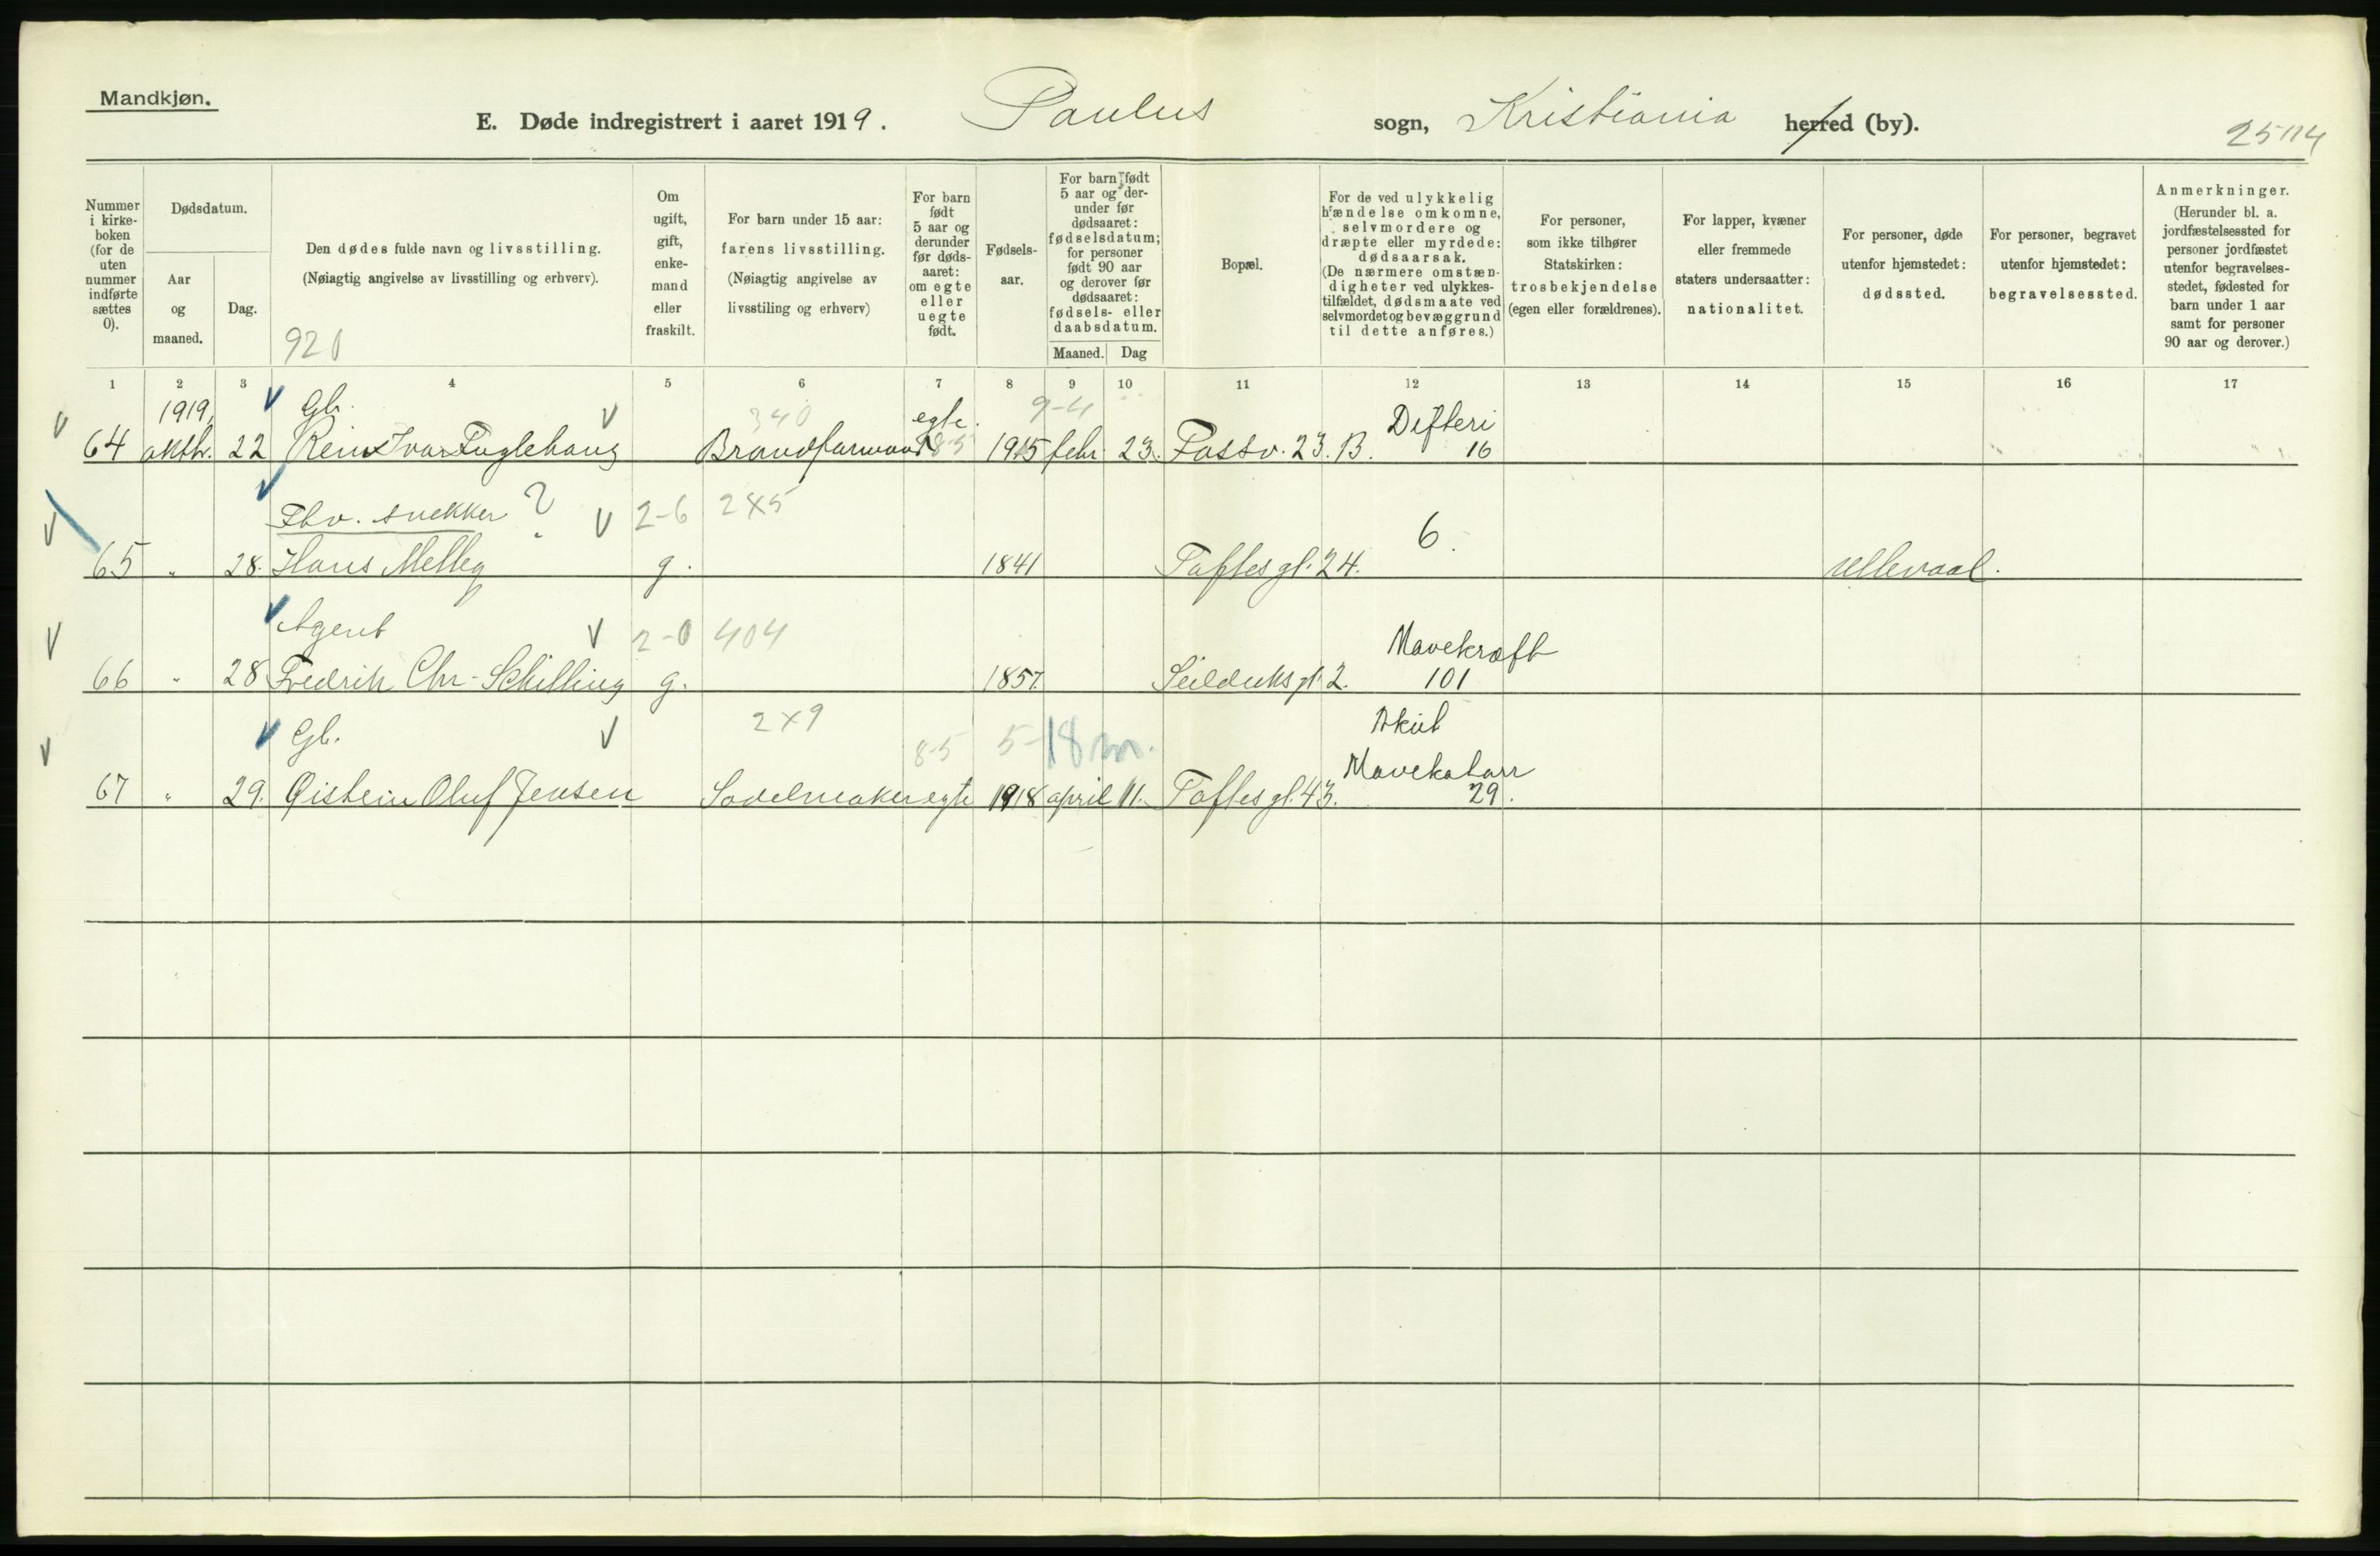 Mandkjøn.
E. Døde indregistrert i aaret 1919. Paulus sogn, Kristiania herred (by).
25114
Nummer i kirkeboken (for de uten nummer indførte sættes 0).
Dødsdatum.
Aar og maaned.
Dag.
Den dødes fulde navn og livsstilling.
(Nøiagtig angivelse av livsstilling og erhverv).
920
Om ugift, gift, enkemand eller fraskilt.
For barn under 15 aar: farens livsstilling.
(Nøiagtig angivelse av livsstiling og erhverv)
For barn født 5 aar og derunder før dødsaaret: om egte eller uegte født.
Fødselsaar.
For barn født 5 aar og derunder før dødsaaret: fødselsdatum; for personer født 90 aar og derover før dødsaaret: fødsels- eller daabsdatum.
Maaned. Dag
Bopæl.
For de ved ulykkelig hændelse omkomne, selvmordere og dræpte eller myrdede: dødsaarsak.
(De nærmere omstændigheter ved ulykkestilfældet, dødsmaate ved selvmordet og bevæggrund til dette anføres.)
For personer, som ikke tilhører Statskirken: trosbekjendelse (egen eller forældrenes).
For lapper, kvæner eller fremmede staters undersaatter: nationalitet.
For personer, døde utenfor hjemstedet: dødssted.
For personer, begravet utenfor hjemstedet: begravelsessted.
Anmerkninger.
(Herunder bl. a. jordfæstelsessted for personer jordfæstet utenfor begravelsesstedet, fødested for barn under 1 aar samt for personer 90 aar og derover.)
1 2 3 4 5 6 7 8 9 10 11 12 13 14 15 16 17
1919, Gb. 340 egte. 9-4 Difteri
64 oktb. 22 Rein Ivar Fuglehaug Brandformand 85 1915 febr. 23. Fossv. 23. B. 16
Fhv. snekker ? 2-6 2x5 6.
65 " 28. Hans Melleg g. 1841 Toftes gt. 24. Ullevaal.
Agent 2-0 404 Mavekræft
66 " 28 Fredrik Chr. Schilling g. 1857. Seilduks gt. 2. 101
Gb. 2x9 85 5-18 m. Akut
Mavekatarr
67 " 29. Øistein Oluf Jensen Sadelmaker egte 1918 april 11. Toftes gt. 43. 29.